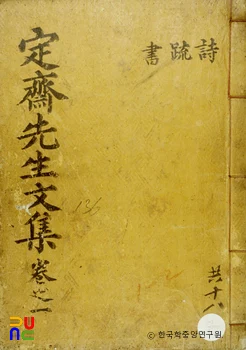 詩疏書
定齋先生文集 卷之一
共十八
136
ⓒ 한국학중앙연구원